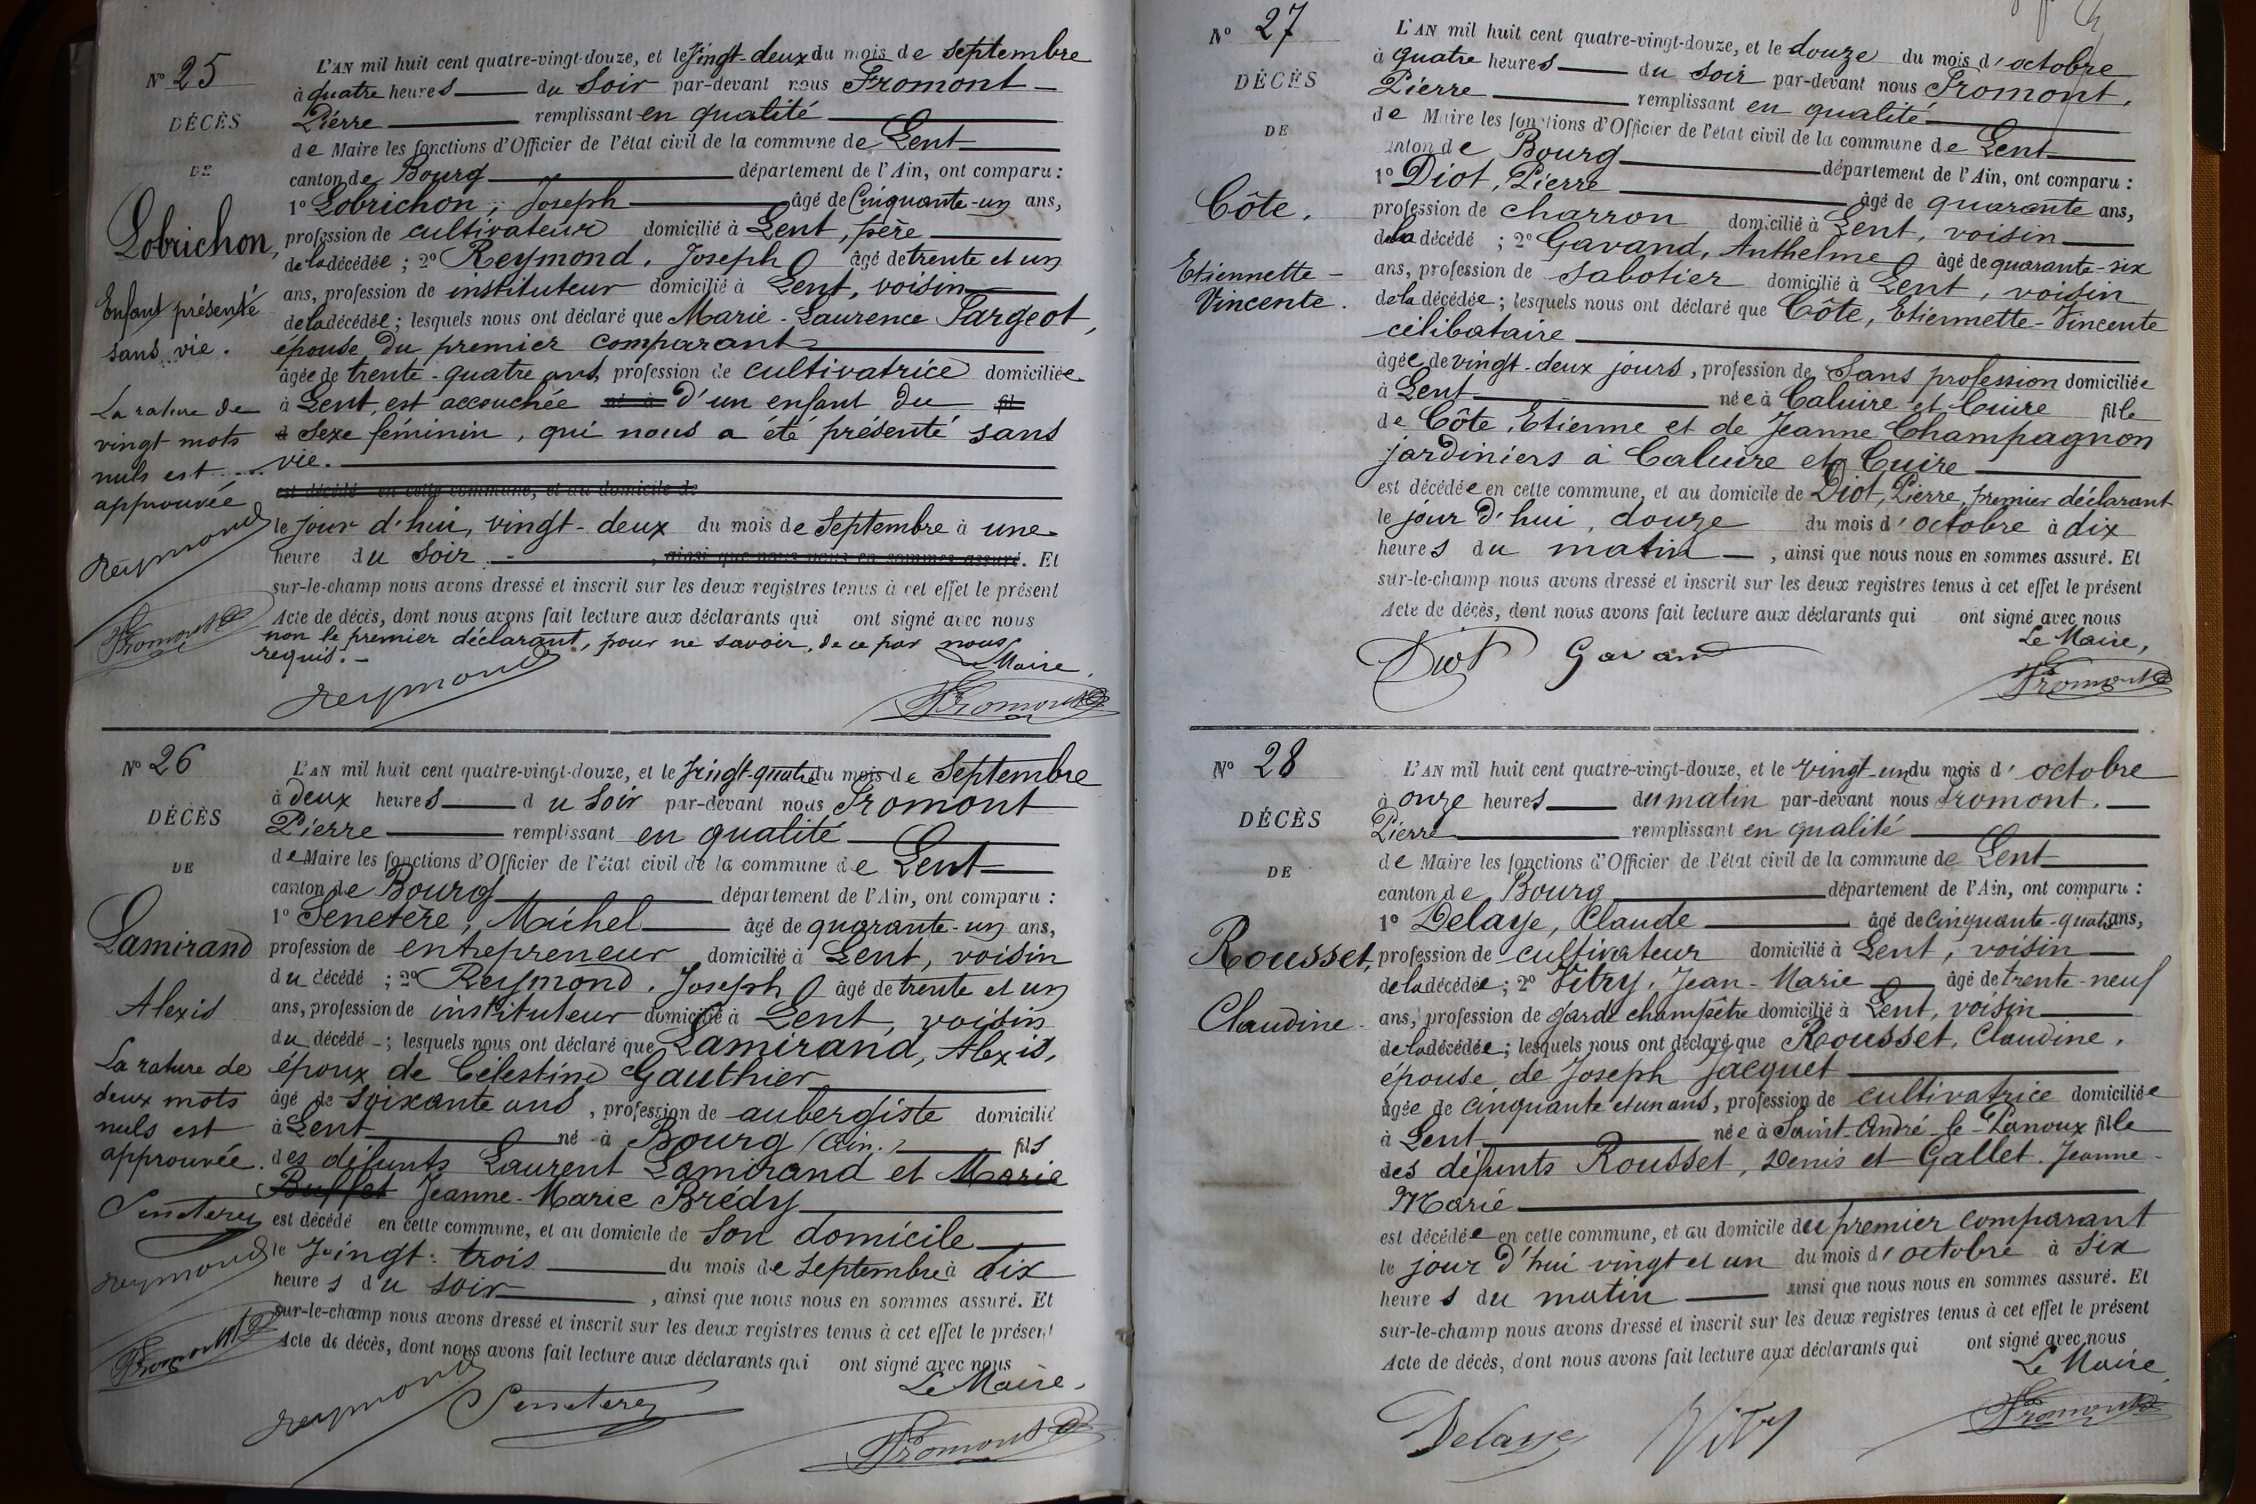 N° 25
DÉCÈS
DE
Lobrichon,
Enfant présenté
sans vie.
La rature de
vingt mots
nuls est
approuvée
Reymond
Fromont
L'AN mil huit cent quatre-vingt-douze, et le vingt-deux du mois de septembre
à quatre heures du soir par-devant nous Fromont
Pierre remplissant en qualité
de Maire les fonctions d'Officier de l'état civil de la commune de Lent
canton de Bourg département de l'Ain, ont comparu :
1° Lobrichon, Joseph âgé de cinquante-un ans,
profession de cultivateur domicilié à Lent, père
de la décédée ; 2° Reymond, Joseph âgé de trente et un
ans, profession de instituteur domicilié à Lent, voisin
de la décédée ; lesquels nous ont déclaré que Marie-Laurence Pargeot,
épouse du premier comparant
âgée de trente-quatre ans, profession de cultivatrice domiciliée
à Lent, est accouchée né à d'un enfant du fil
d sexe féminin, qui nous a été présenté sans
vie.
est décédé en cette commune, et au domicile de
le jour d'hui, vingt-deux du mois de septembre à une
heure du soir , ainsi que nous nous en sommes assuré. Et
sur-le-champ nous avons dressé et inscrit sur les deux registres tenus à cet effet le présent
Acte de décès, dont nous avons fait lecture aux déclarants qui ont signé avec nous
non le premier déclarant, pour ne savoir, de ce par nous
requis.
Le Maire
Reymond
Fromont
N° 26
DÉCÈS
DE
Lamirand
Alexis
La rature de
deux mots
nuls est
approuvée.
Seneterre
Reymond
Fromont
L'AN mil huit cent quatre-vingt-douze, et le vingt-quatre du mois de Septembre
à deux heures du soir par-devant nous Fromont
Pierre remplissant en qualité
de Maire les fonctions d'Officier de l'état civil de la commune de Lent
canton de Bourg département de l'Ain, ont comparu :
1° Senetère, Michel âgé de quarante-un ans,
profession de entrepreneur domicilié à Lent, voisin
du décédé ; 2° Reymond, Joseph âgé de trente et un
ans, profession de instituteur domicilié à Lent, voisin
du décédé ; lesquels nous ont déclaré que Lamirand, Alexis,
époux de Célestine Gauthier
âgé de soixante ans, profession de aubergiste domicilié
à Lent né à Bourg (Ain.) fils
des défunts Laurent Lamirand et Marie
Buffet Jeanne-Marie Brédy
est décédé en cette commune, et au domicile de son domicile
le vingt-trois du mois de septembre à dix
heures du soir , ainsi que nous nous en sommes assuré. Et
sur-le-champ nous avons dressé et inscrit sur les deux registres tenus à cet effet le présent
Acte de décès, dont nous avons fait lecture aux déclarants qui ont signé avec nous
Le Maire.
Reymond
Seneterre
Fromont
N° 27
DÉCÈS
DE
Côte,
Etiennette-
Vincente.
L'AN mil huit cent quatre-vingt-douze, et le douze du mois d'octobre
à quatre heures du soir par-devant nous Fromont,
Pierre remplissant en qualité
de Maire les fonctions d'Officier de l'état civil de la commune de Lent
canton de Bourg département de l'Ain, ont comparu :
1° Diot, Pierre âgé de quarante ans,
profession de charron domicilié à Lent, voisin
de la décédé ; 2° Gavand, Anthelme âgé de quarante-six
ans, profession de sabotier domicilié à Lent, voisin
de la décédée ; lesquels nous ont déclaré que Côte, Etiennette-Vincente
célibataire
âgée de vingt-deux jours, profession de sans profession domiciliée
à Lent née à Caluire et Cuire fille
de Côte, Etienne et de Jeanne Champagnon
jardiniers à Caluire et Cuire
est décédée en cette commune, et au domicile de Diot, Pierre, premier déclarant
le jour d'hui, douze du mois d'octobre à dix
heures du matin , ainsi que nous nous en sommes assuré. Et
sur-le-champ nous avons dressé et inscrit sur les deux registres tenus à cet effet le présent
Acte de décès, dont nous avons fait lecture aux déclarants qui ont signé avec nous
Le Maire,
Diot
Gavand
Fromont
N° 28
DÉCÈS
DE
Rousset,
Claudine
L'AN mil huit cent quatre-vingt-douze, et le vingt-un du mois d'octobre
à onze heures du matin par-devant nous Fromont.
Pierre remplissant en qualité
de Maire les fonctions d'Officier de l'état civil de la commune de Lent
canton de Bourg département de l'Ain, ont comparu :
1° Delaye, Claude âgé de cinquante-quatre ans,
profession de cultivateur domicilié à Lent, voisin
de la décédée ; 2° Vitry, Jean-Marie âgé de trente-neuf
ans, profession de garde champêtre domicilié à Lent, voisin
de la décédée ; lesquels nous ont déclaré que Rousset, Claudine,
épouse de Joseph Jacquet
âgée de cinquante et un ans, profession de cultivatrice domiciliée
à Lent née à Saint-André-le-Panoux fille
des défunts Rousset, Denis et Gallet Jeanne-
Marie
est décédée en cette commune, et au domicile du premier comparant
le jour d'hui vingt et un du mois d'octobre à six
heures du matin ainsi que nous nous en sommes assuré. Et
sur-le-champ nous avons dressé et inscrit sur les deux registres tenus à cet effet le présent
Acte de décès, dont nous avons fait lecture aux déclarants qui ont signé avec nous
Le Maire,
Delaye
Vitry
Fromont